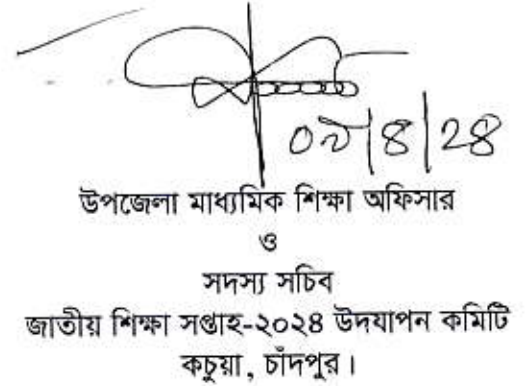 ০৯|৪|২৪
উপজেলা মাধ্যমিক শিক্ষা অফিসার
ও
সদস্য সচিব
জাতীয় শিক্ষা সপ্তাহ-২০২৪ উদযাপন কমিটি
কচুয়া, চাঁদপুর।